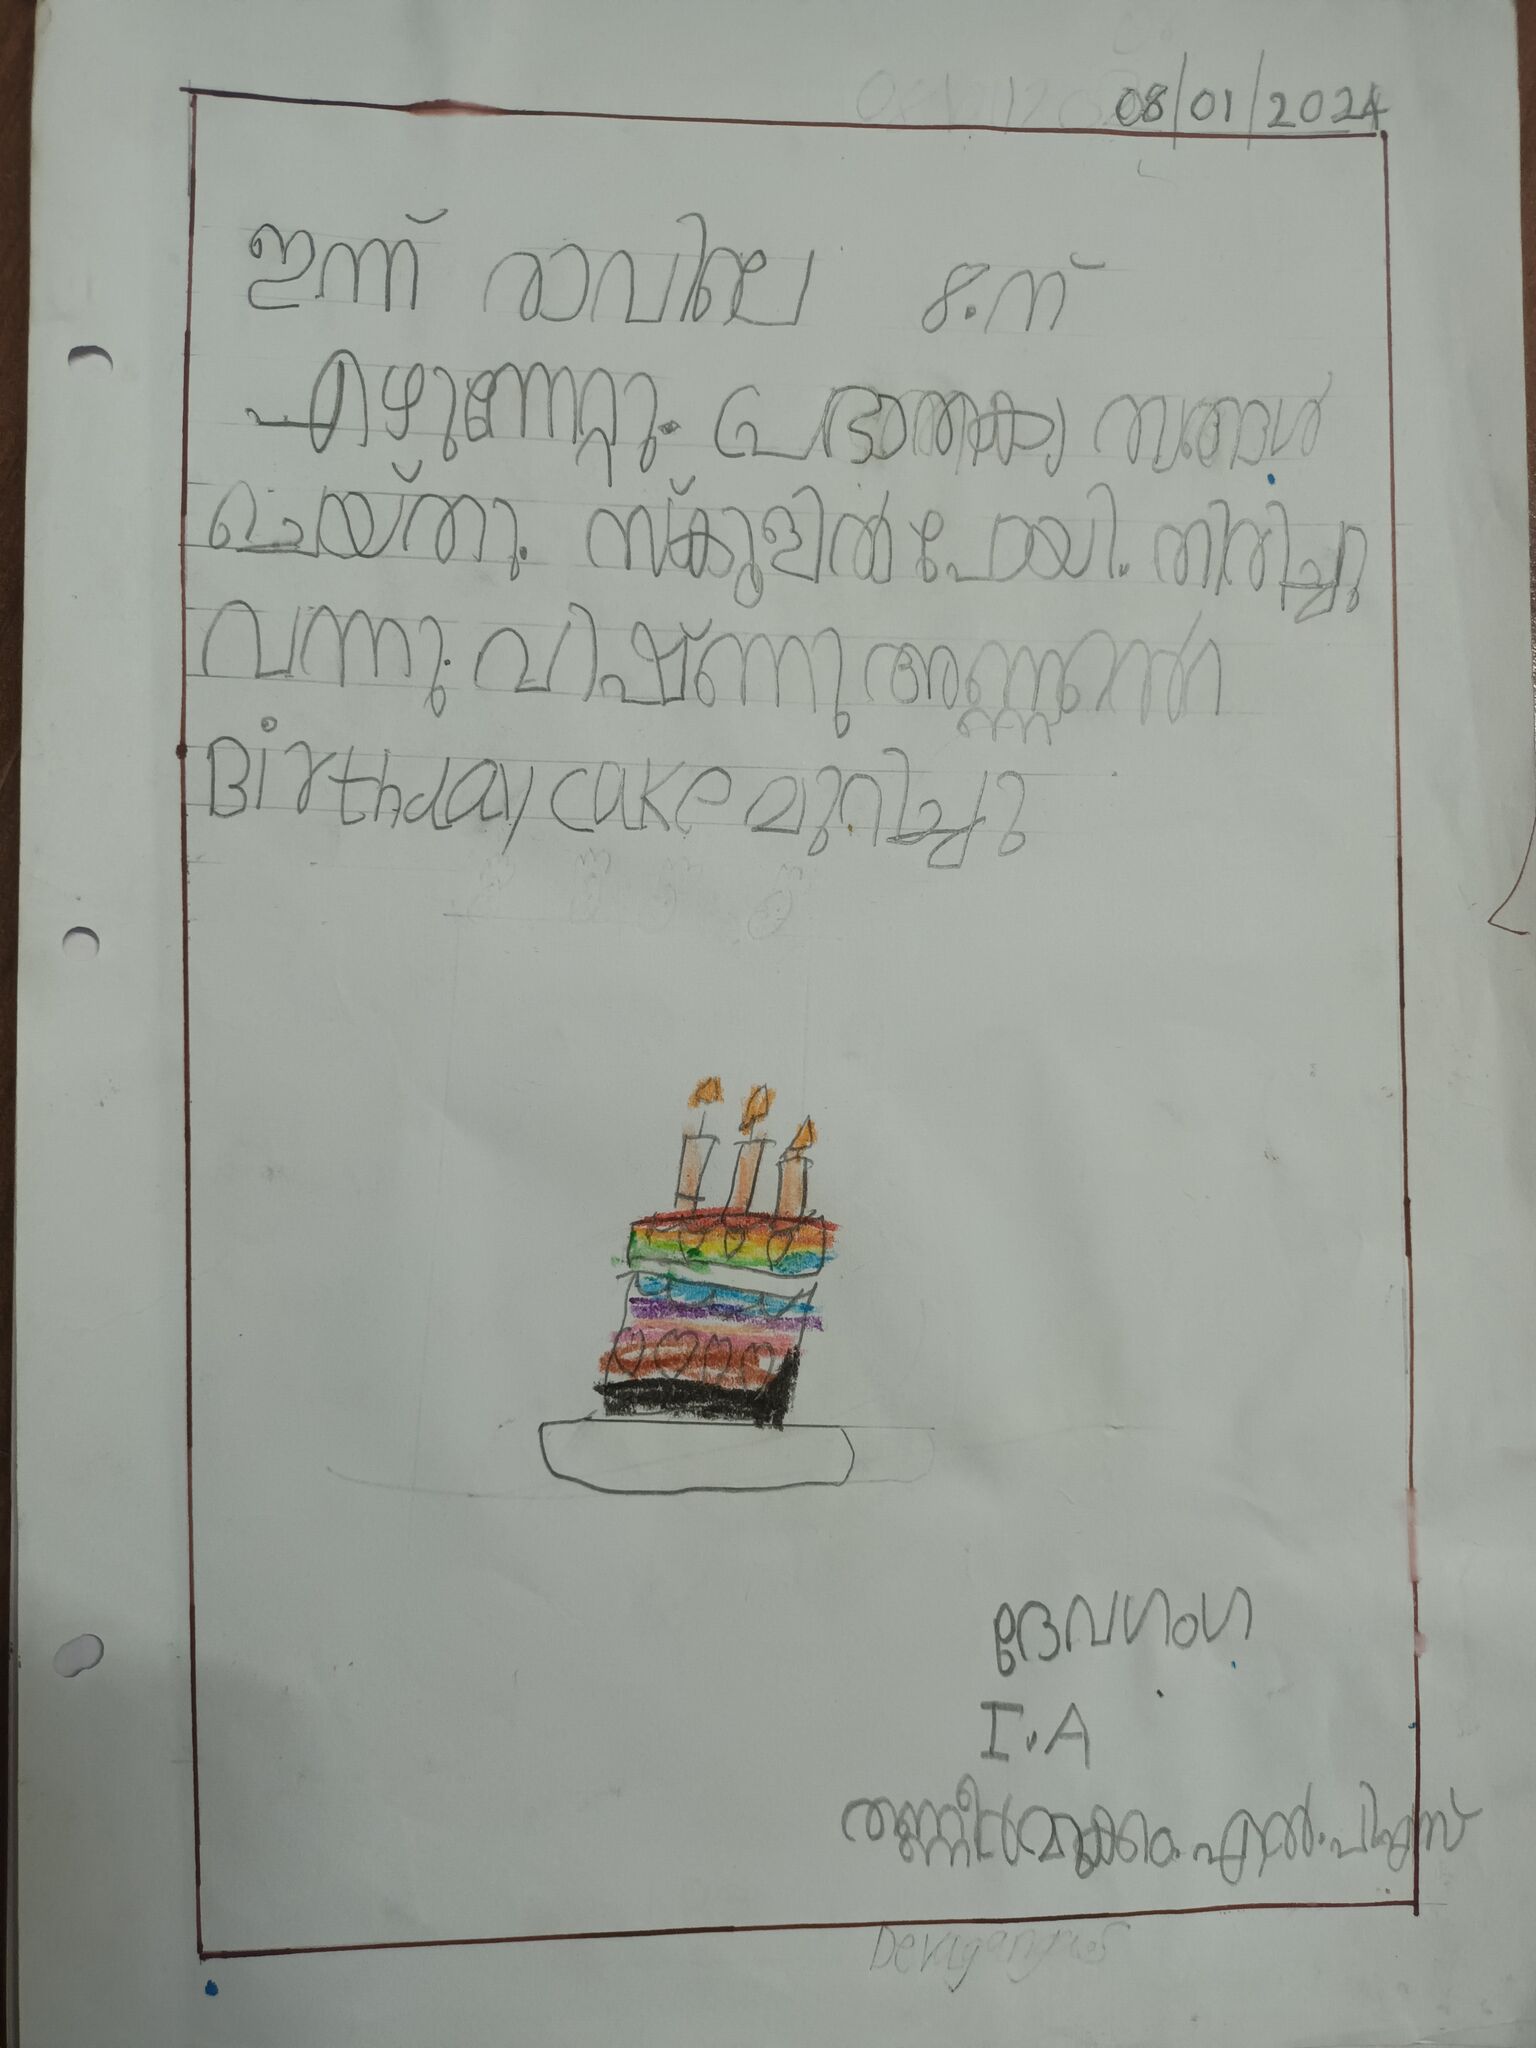 08/01/2024
ഇന്ന് രാവിലെ 8.ന്
എഴുന്നേറ്റു. പ്രഭാതകൃ ത്യങ്ങൾ
ചെയ്തു. സ്കൂളിൽ പോയി. തിരിച്ചു
വന്നു. വിഷ്ണു അണ്ണന്റെ
Birthday cake മുറിച്ചു
ദേവഗംഗ
I.A
തണ്ണീർമുക്കം എൽ.പി എസ്